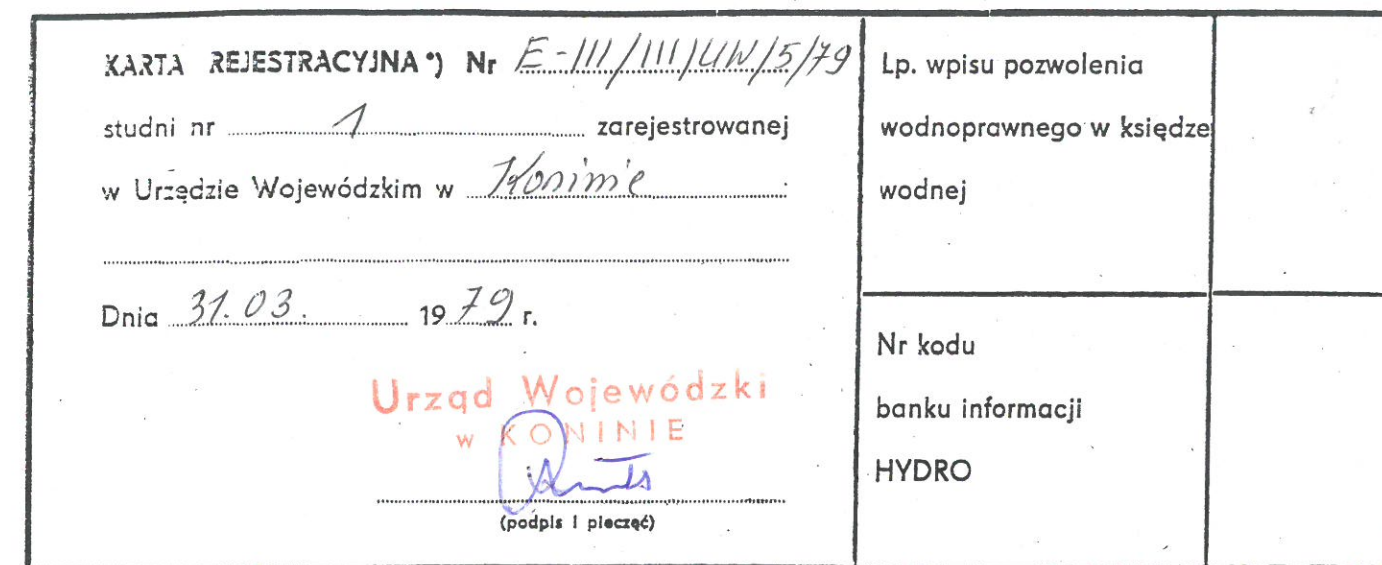 KARTA REJESTRACYJNA*) Nr E-III/III/UW/5/79
studni nr 1 zarejestrowanej
w Urzędzie Wojewódzkim w Koninie
Dnia 31.03. 1979 r.
Urząd Wojewódzki
w KONINIE
(podpis i pieczęć)
Lp. wpisu pozwolenia
wodnoprawnego w księdze
wodnej
Nr kodu
banku informacji
HYDRO